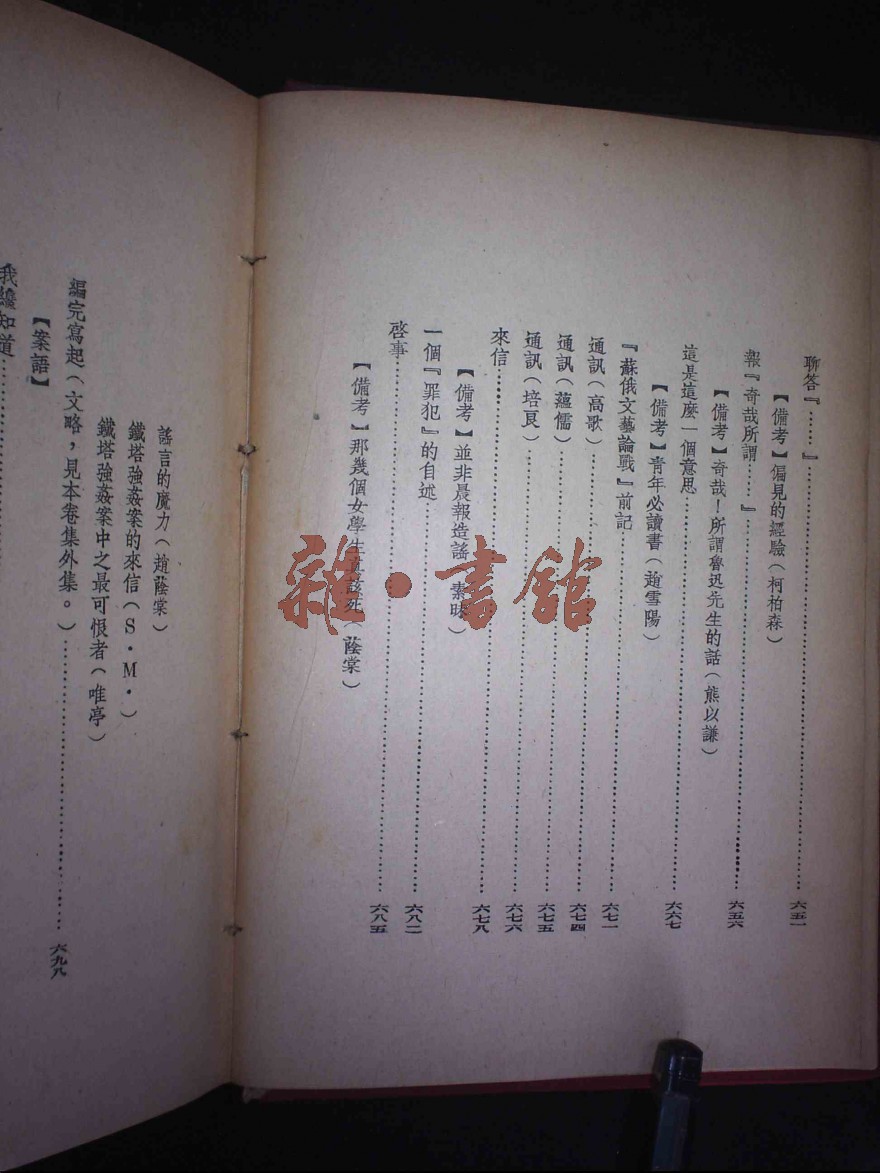 聊答『……』……六五一
【備考】偏見的經驗（柯柏森）
報『奇哉所謂……』……六五六
【備考】奇哉！所謂魯迅先生的話（熊以謙）
這是這麼一個意思……六六七
【備考】青年必讀書（趙雪陽）
『蘇俄文藝論戰』前記……六七一
通訊（高歌）……六七四
通訊（蘊儒）……六七五
通訊（培良）……六七六
來信……六七八
【備考】並非晨報造謠（素昧）
一個『罪犯』的自述……六八二
啓事……六八五
【備考】那幾個女學生真該死（蔭棠）
謠言的魔力（趙蔭棠）
鐵塔強姦案的來信（S·M·）
鐵塔強姦案中之最可恨者（唯亭）
編完寫起（文略，見本卷集外集。）……六九八
【案語】
我纔知道……
雜·書館